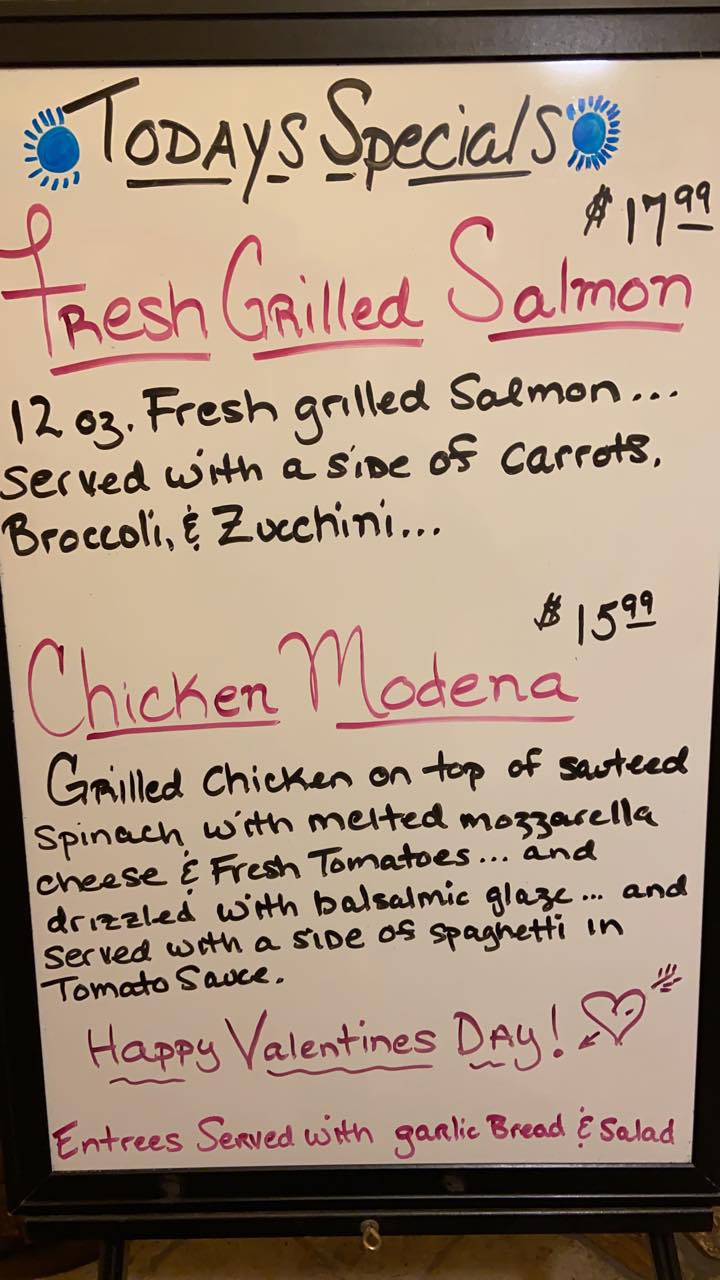 TODAYS Specials
$17.99
Fresh Grilled Salmon
12 oz. Fresh grilled Salmon...
Served with a side of carrots,
Broccoli, & Zucchini...
$15.99
Chicken Modena
Grilled Chicken on top of sauteed
spinach with melted mozzarella
cheese & Fresh Tomatoes... and
drizzled with balsalmic glaze... and
served with a side of spaghetti in
Tomato Sauce.
Happy Valentines Day!
Entrees Served with garlic Bread & Salad